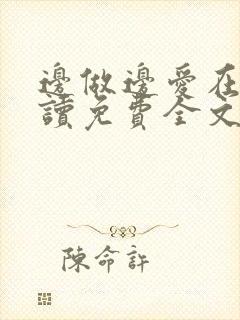 邊做邊愛在
讀免費全文
陳命許